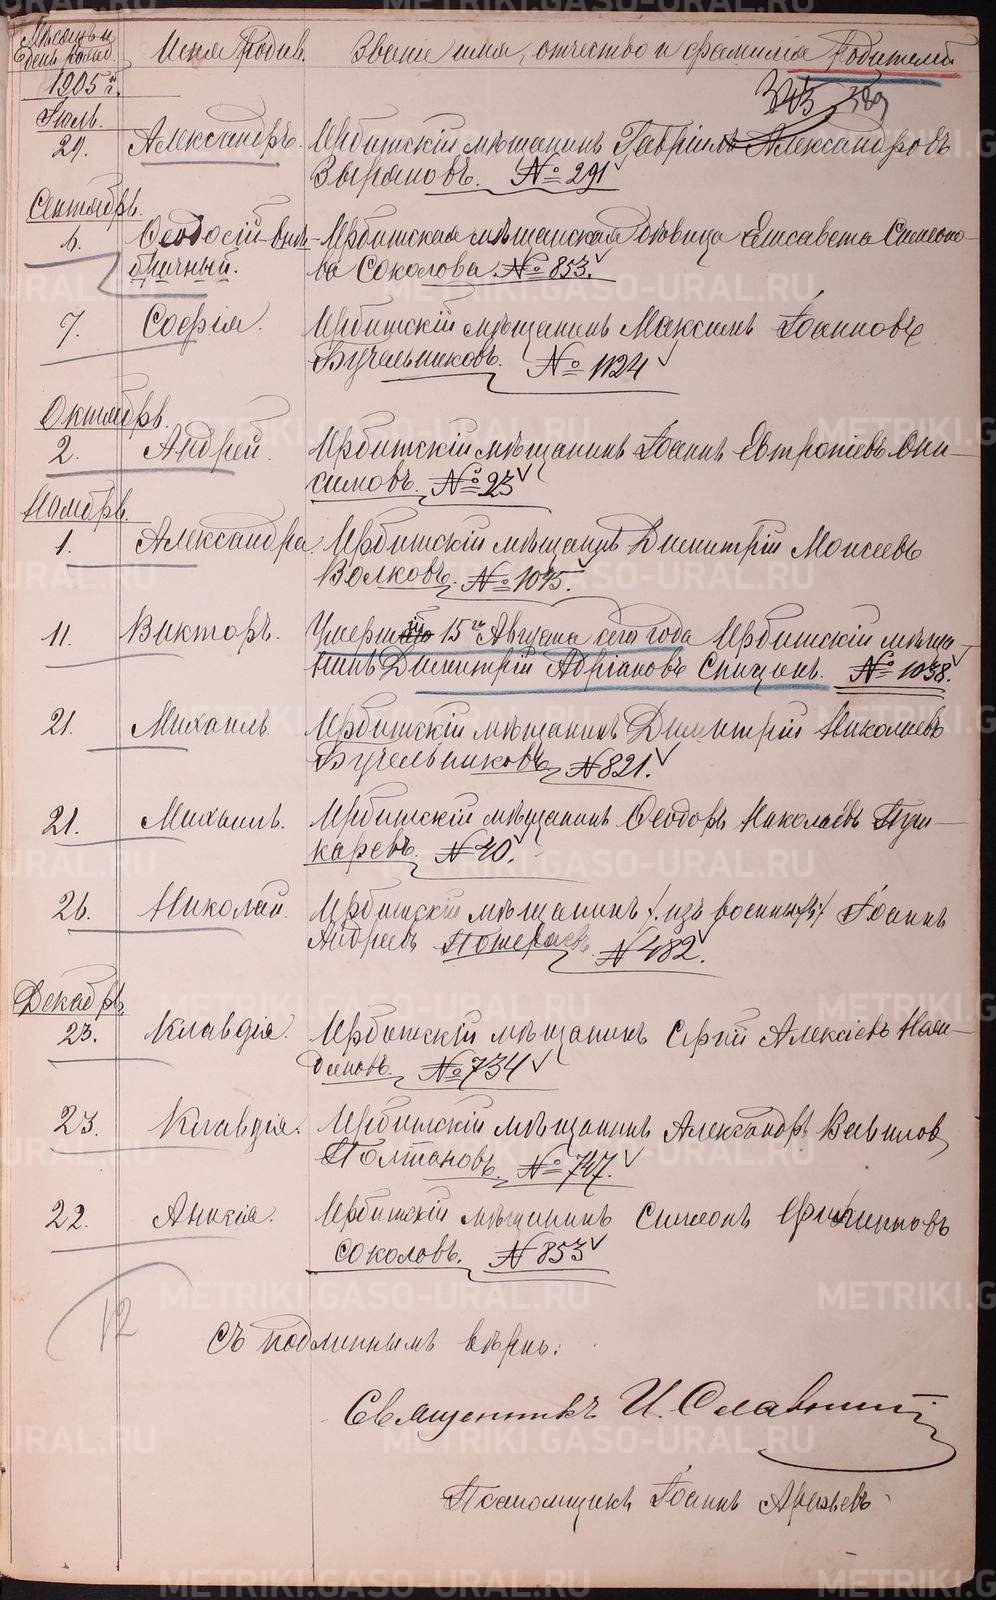 Мѣсяцъ и день рожд. Имя Родив. Званіе имя, отчество и фамилія Родителей
1905 г.
Іюль.
29. Александръ. Ирбитскій мѣщанинъ Гавріилъ Александровъ
Зыряновъ. № 291
Сентябрь.
6. Ѳеодосій внѣ- Ирбитская мѣщанская дѣвица Елисавета Симеоно-
брачный. ва Соколова № 853.
7. Софія. Ирбитскій мѣщанинъ Максимъ Іоанновъ
Бучельниковъ. № 1124
Октябрь.
2. Андрей. Ирбитскій мѣщанинъ Іоаннъ Евтропіевъ Они-
симовъ. № 23
Ноябрь.
1. Александра. Ирбитскій мѣщанинъ Димитрій Моисеевъ
Волковъ. № 1045.
11. Викторъ. Умершій 15го Августа сего года Ирбитскій мѣща-
нинъ Димитрій Адріановъ Спицынъ. № 1038.
21. Михаилъ. Ирбитскій мѣщанинъ Димитрій Николаевъ
Бучельниковъ, № 821.
21. Михаилъ. Ирбитскій мѣщанинъ Ѳеодоръ Николаевъ Пуш-
каревъ. № 40.
26. Николай. Ирбитскій мѣщанинъ (изъ военныхъ) Іоаннъ
Андреевъ № 482.
Декабрь.
23. Клавдія. Ирбитскій мѣщанинъ Сергій Алексіевъ Най-
дановъ. № 734
23. Клавдія. Ирбитскій мѣщанинъ Александръ Вавилов
Полтановъ. № 747.
22. Анисія. Ирбитскій мѣщанинъ Симеонъ
Соколовъ. № 853
12
Съ подлиннымъ вѣрно:
Священникъ И. Славнинъ
Псаломщикъ Іоаннъ Арефьевъ
METRIKI.GASO-URAL.RU